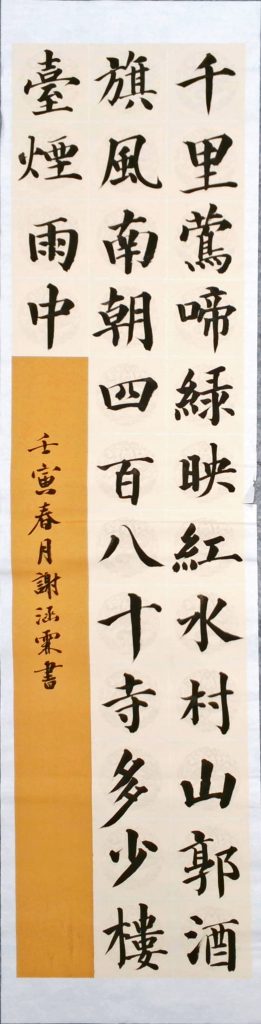 千里鶯啼緑映紅水村山郭酒
旗風南朝四百八十寺多少樓
臺煙雨中
壬寅春月謝涵霖書